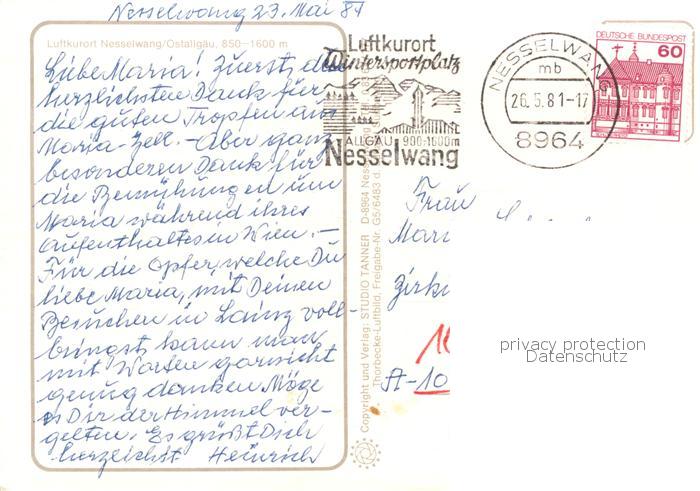 Nesselwang 23. Mai 81
Luftkurort Nesselwang/Ostallgäu, 850–1600 m
Liebe Maria! Zuerst den
herzlichsten Dank für
die guten Tropfen aus
Maria-Zell. – Aber ganz
besonderen Dank für
die Bemühungen um
Maria während ihres
Aufenthaltes in Wien. –
Für die Opfer, welche Du
liebe Maria, mit Deinen
Besuchen in Lainz voll
bringst, kann man
mit Worten garnicht
genug danken. Möge
es Dir der Himmel ver-
gelten. Es grüßt Dich
herzlichst Heinrich
Luftkurort
Wintersportplatz
ALLGÄU 900-1600m
Nesselwang
NESSELWANG
mb
26.5.81-17
8964
DEUTSCHE BUNDESPOST
60
Copyright und Verlag: STUDIO TANNER D-8964 Nes
Thorbecke-Luftbild, Freigabe-Nr. G5/6483 d.
Frau
Mari
Zirku
A-10
privacy protection
Datenschutz